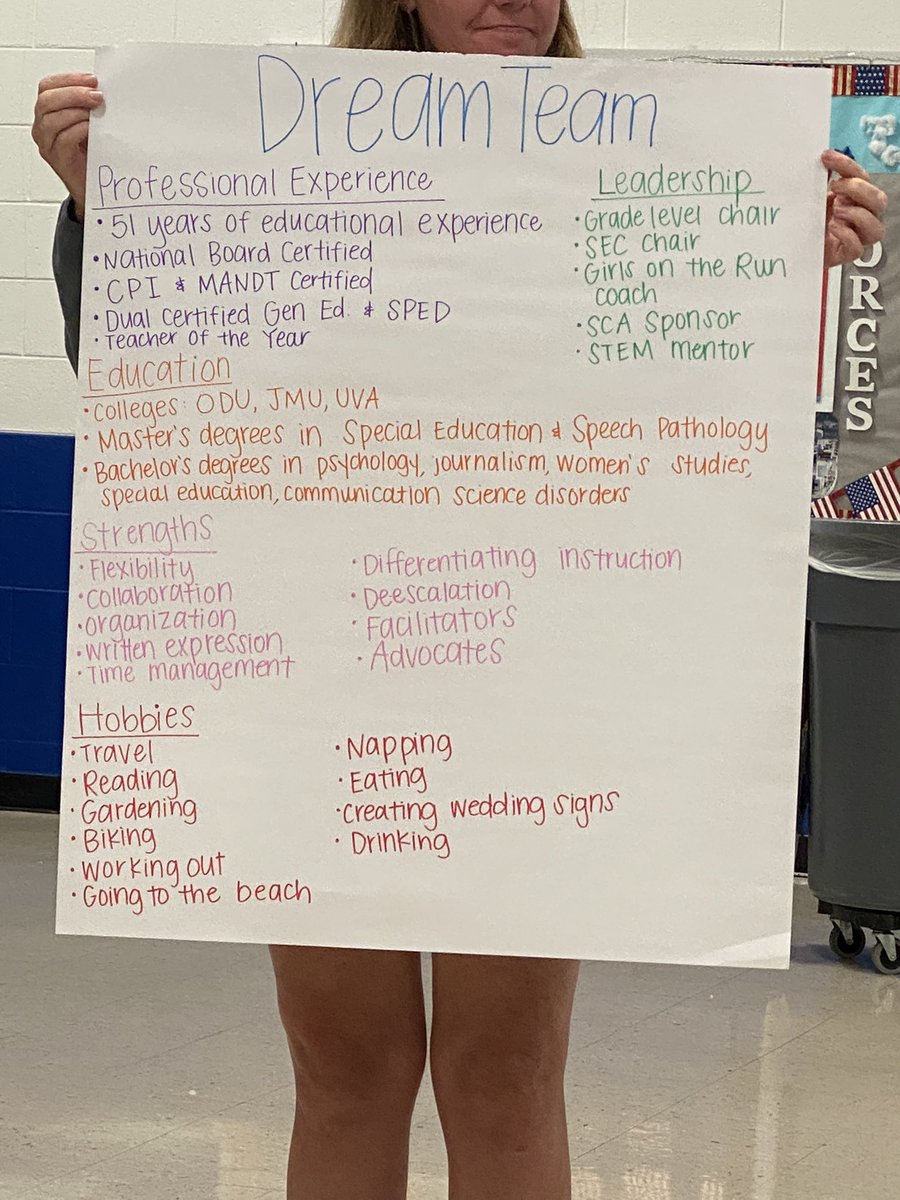 Dream Team
Professional Experience
• 51 years of educational experience
• National Board Certified
• CPI & MANDT Certified
• Dual Certified Gen Ed. & SPED
• Teacher of the Year
Leadership
• Grade level chair
• SEC Chair
• Girls on the Run
coach
• SCA Sponsor
• STEM mentor
Education
• Colleges: ODU, JMU, UVA
• Master's degrees in Special Education & Speech Pathology
• Bachelor's degrees in psychology, journalism, women's studies,
special education, communication science disorders
Strengths
• Flexibility
• Collaboration
• organization
• written expression
• Time management
• Differentiating instruction
• Deescalation
• Facilitators
• Advocates
Hobbies
• Travel
• Reading
• Gardening
• Biking
• Working out
• Going to the beach
• Napping
• Eating
• creating wedding signs
• Drinking
ORCES